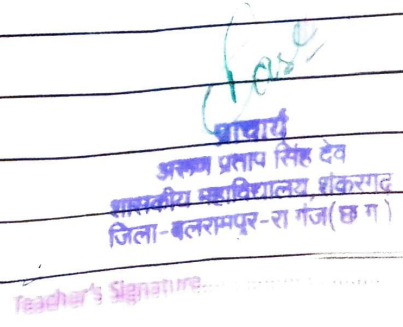 प्राचार्य
अरूण प्रताप सिंह देव
शासकीय महाविद्यालय, शंकरगढ़
जिला-बलरामपुर-रा गंज(छ ग)
Teacher's Signature